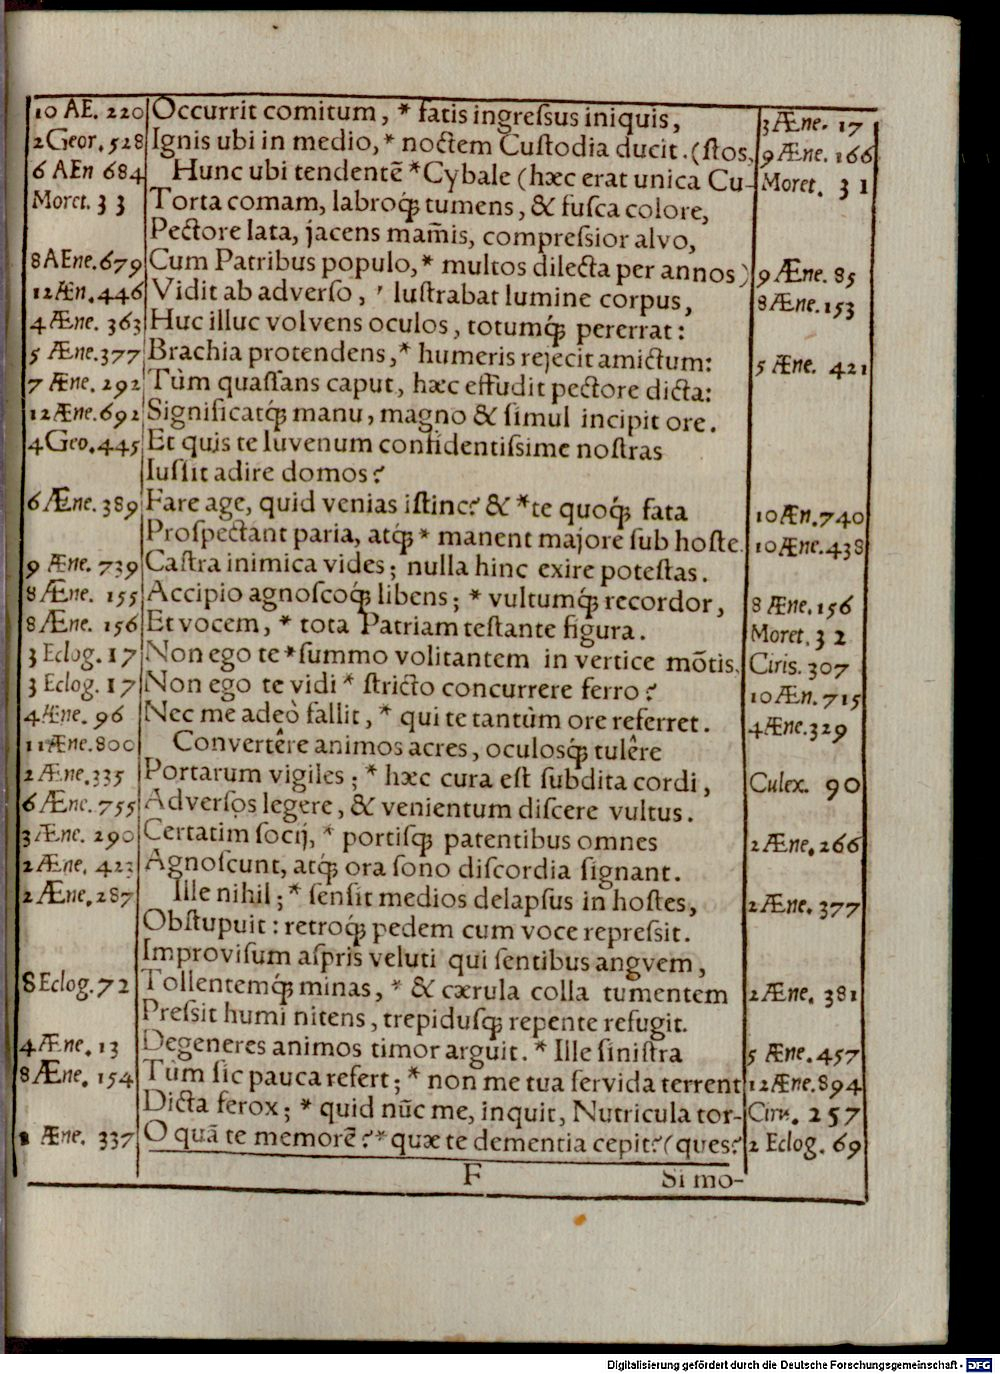 10 AE. 220 Occurrit comitum, * fatis ingreſsus iniquis, 3 Æne. 17
2 Geor. 528 Ignis ubi in medio, * noctem Cuſtodia ducit. (ſtos, 9 Æne. 166
6 AEn 684 Hunc ubi tendentē * Cybale (hæc erat unica Cu- Moret. 31
Moret. 33 Torta comam, labroq́; tumens, & fuſca colore,
Pectore lata, jacens mam̄is, compreſsior alvo,
8 AEne. 679 Cum Patribus populo, * multos dilecta per annos) 9 Æne. 85
12 Æn. 446 Vidit ab adverſo, * luſtrabat lumine corpus, 8 Æne. 153
4 Æne. 363 Huc illuc volvens oculos, totumq́; pererrat:
5 Æne. 377 Brachia protendens, * humeris rejecit amictum: 5 Æne. 421
7 Æne. 292 Tùm quaſſans caput, hæc effudit pectore dicta:
12 Æne. 692 Significatq́; manu, magno & ſimul incipit ore.
4 Geo. 445 Et quis te Iuvenum confidentiſsime noſtras
Iuſſit adire domos?
6 Æne. 389 Fare age, quid venias iſtinc? & * te quoq́; fata 10 Æn. 740
Proſpectant paria, atq́; * manent majore ſub hoſte. 10 Æne. 438
9 Æne. 739 Caſtra inimica vides; nulla hinc exire poteſtas.
8 Æne. 155 Accipio agnoſcoq́; libens; * vultumq́; recordor, 8 Æne. 156
8 Æne. 156 Et vocem, * tota Patriam teſtante figura. Moret. 32
3 Eclog. 17 Non ego te * ſummo volitantem in vertice mōtis, Ciris. 307
3 Eclog. 17 Non ego te vidi * ſtricto concurrere ferro? 10 Æn. 715
4 Æne. 96 Nec me adeò fallit, * qui te tantùm ore referret. 4 Æne. 329
11 Æne. 800 Convertêre animos acres, oculosq́; tulêre
2 Æne. 335 Portarum vigiles; * hæc cura eſt ſubdita cordi, Culex. 90
6 Æne. 755 Adverſos legere, & venientum diſcere vultus.
3 Æne. 290 Certatim ſocij, * portiſq́; patentibus omnes 2 Æne. 266
2 Æne. 423 Agnoſcunt, atq́; ora ſono diſcordia ſignant.
2 Æne. 287 Ille nihil; * ſenſit medios delapſus in hoſtes, 2 Æne. 377
Obſtupuit: retroq́; pedem cum voce repreſsit.
Improviſum aſpris veluti qui ſentibus angvem,
8 Eclog. 72 Tollentemq́; minas, * & cærula colla tumentem 2 Æne. 381
Preſsit humi nitens, trepiduſq́; repente refugit.
4 Æne. 13 Degeneres animos timor arguit. * Ille ſiniſtra 5 Æne. 457
8 Æne. 154 Tùm ſic pauca refert; * non me tua fervida terrent 12 Æne. 894
Dicta ferox; * quid nūc me, inquit, Nutricula tor- Ciris. 257
8 Æne. 337 O quā te memorē? * quæ te dementia cepit? (ques? 2 Eclog. 69
F Si mo-
Digitalisierung gefördert durch die Deutsche Forschungsgemeinschaft - DFG